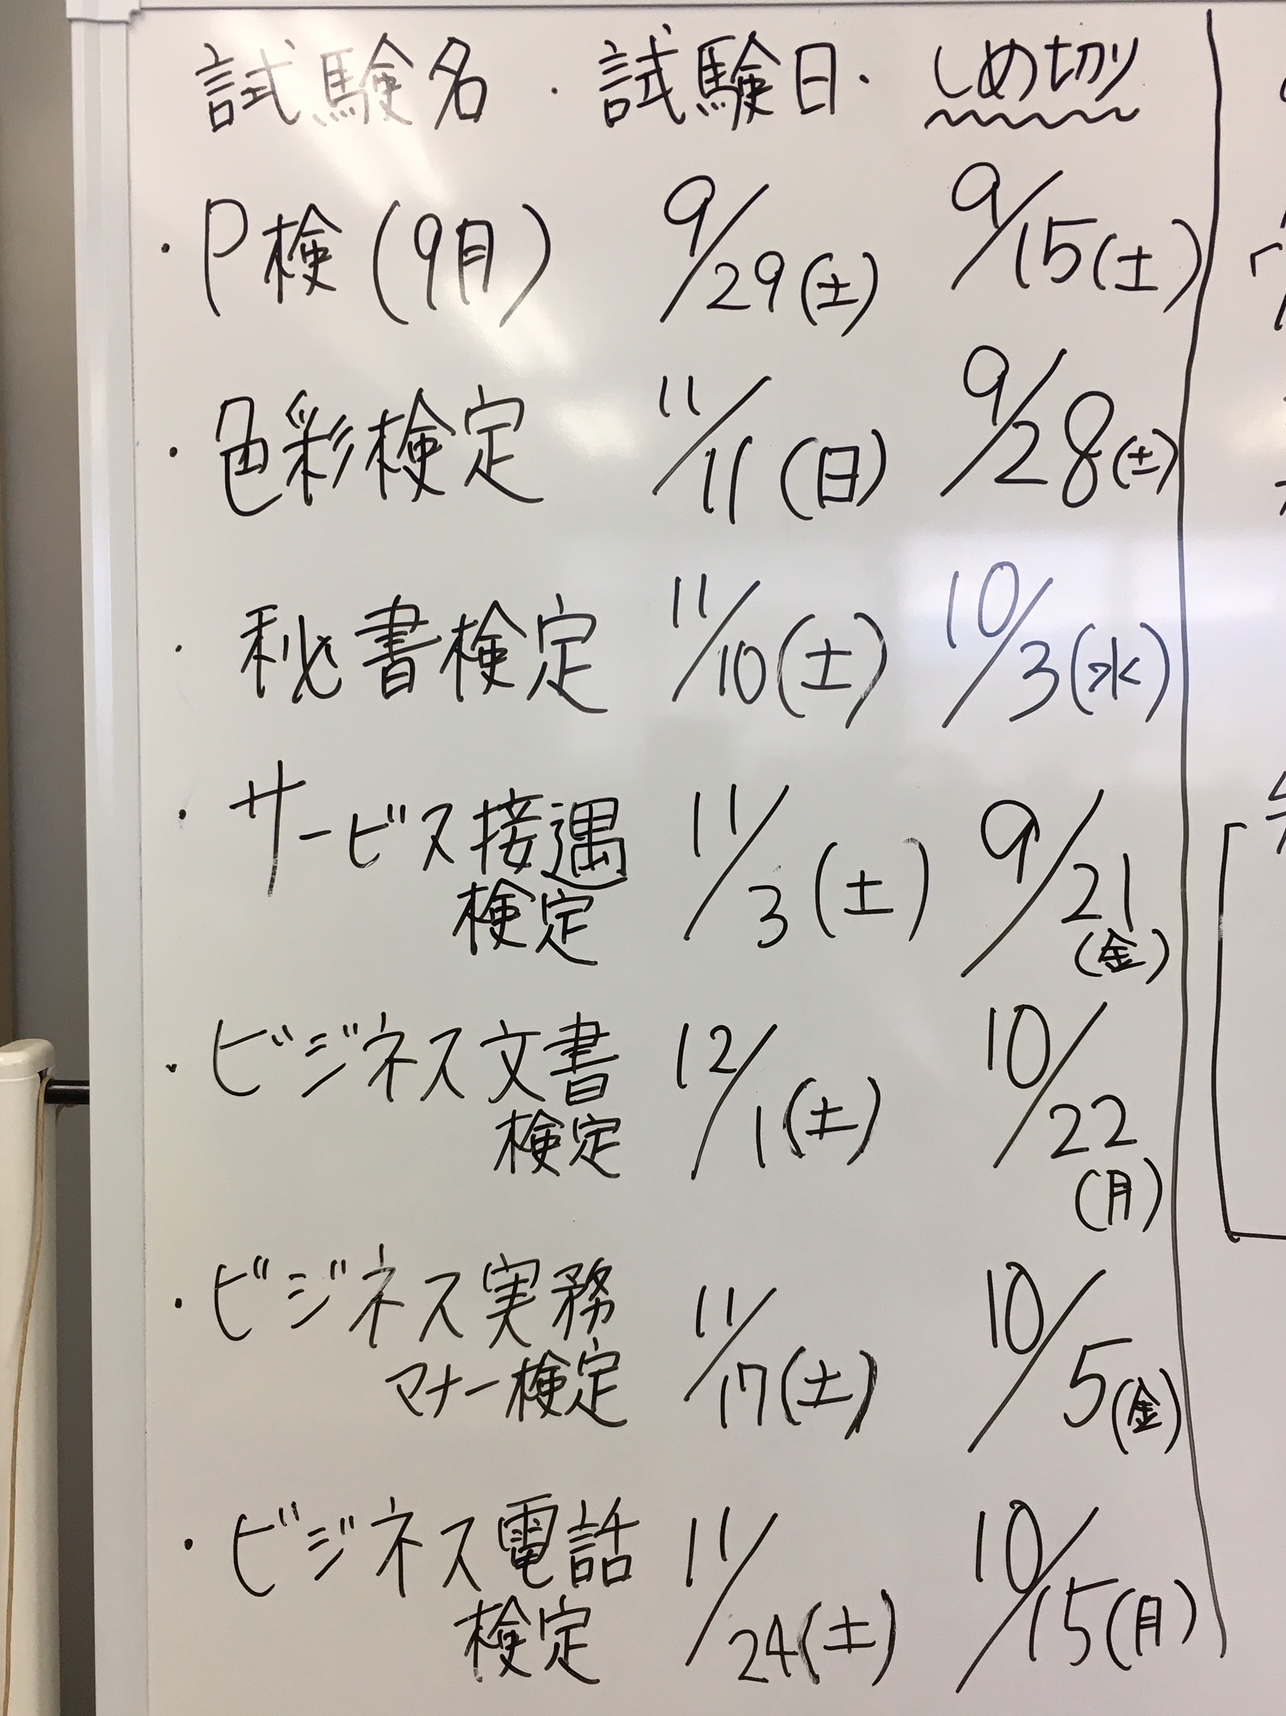 試験名・試験日・しめ切り
・P検(9月) 9/29(土) 9/15(土)
・色彩検定 11/11(日) 9/28(土)
・秘書検定 11/10(土) 10/3(水)
・サービス接遇検定 11/3(土) 9/21(金)
・ビジネス文書検定 12/1(土) 10/22(月)
・ビジネス実務マナー検定 11/17(土) 10/5(金)
・ビジネス電話検定 11/24(土) 10/15(月)